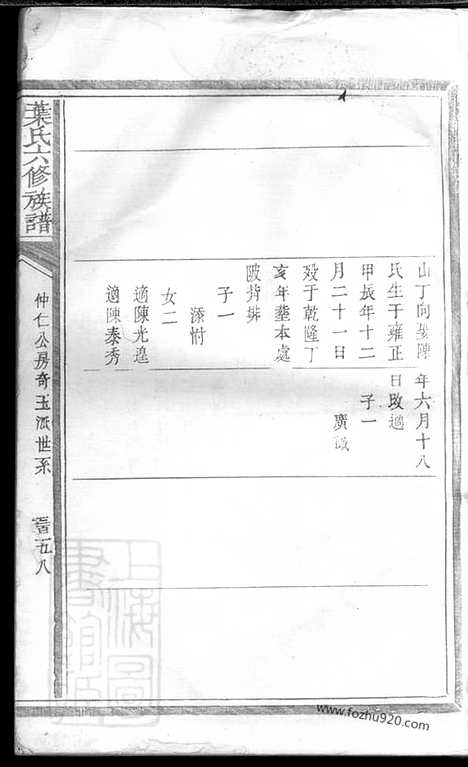 山丁向娶陳
氏生于雍正
甲辰年十二
月二十一日
歿于乾隆丁
亥年塟本處
陂背排
子一
添柎
女二
適陳光遑
適陳泰秀
年六月十八
日改適
子一
廣
葉氏六修族譜
仲仁公房奇玉派世系
五八
上海圖書館藏
www.fozhu920.com